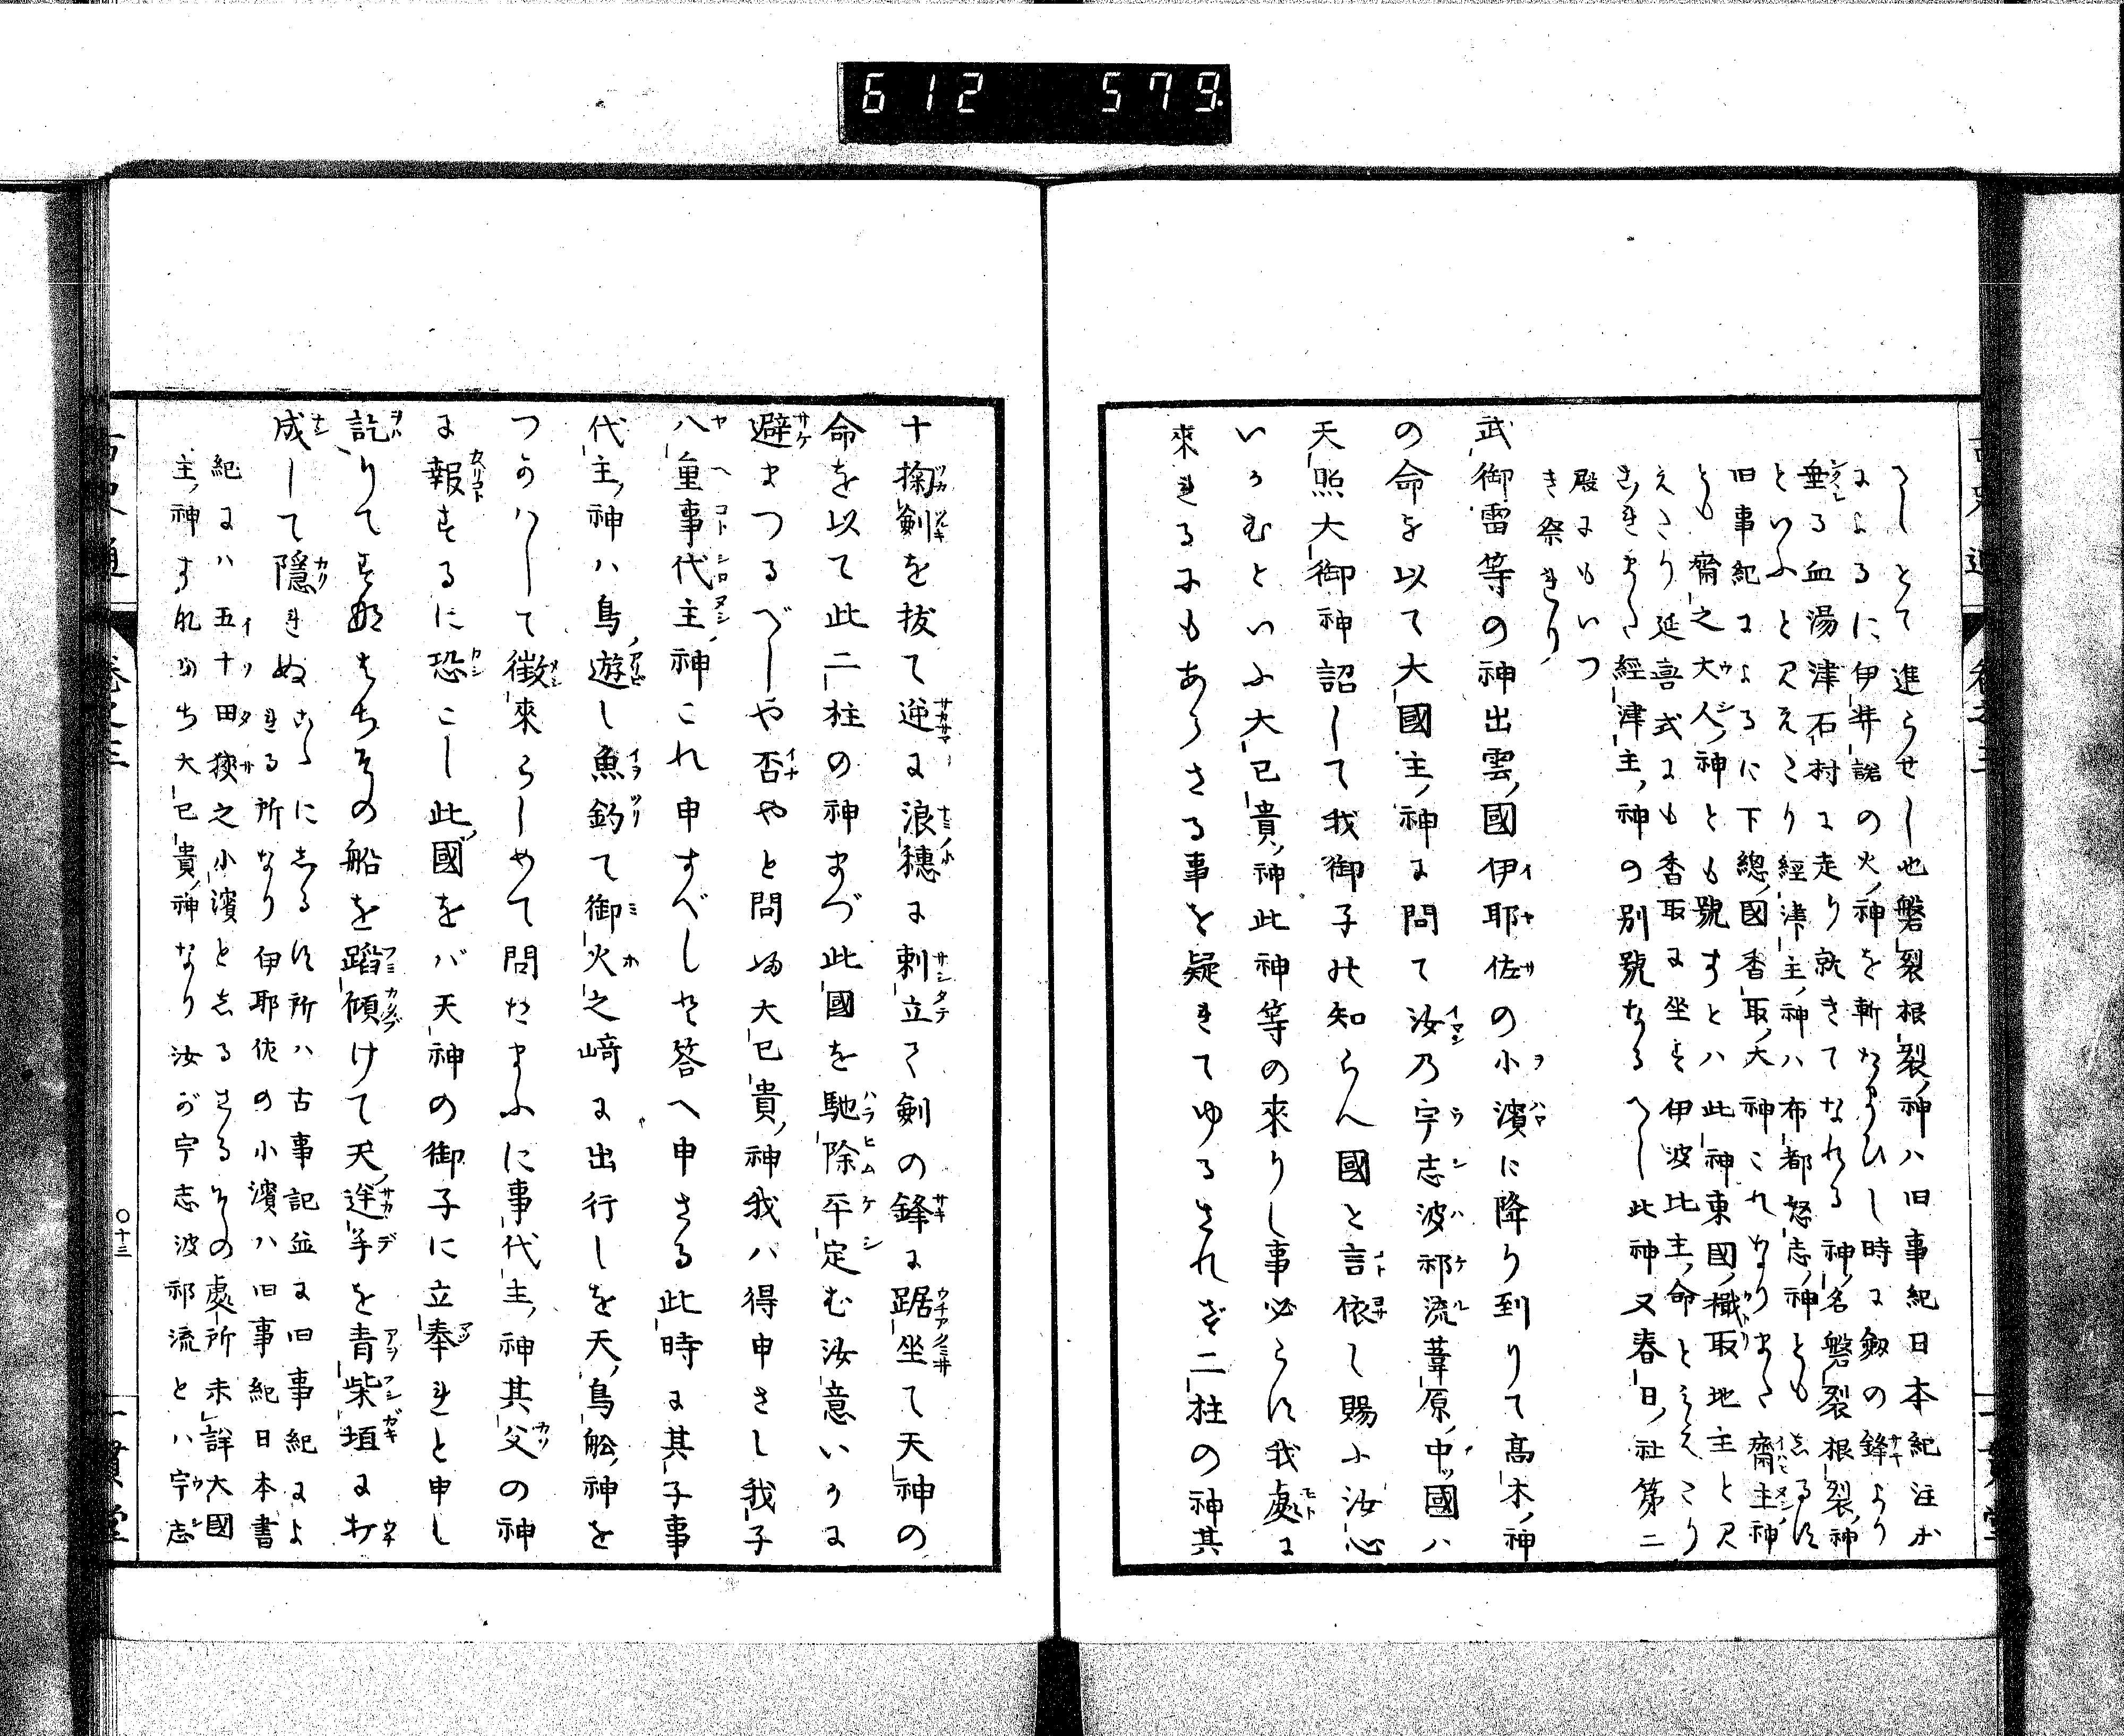 612 579
へしとて進らせし也磐裂根裂神ハ旧事紀日本紀注か
によるに伊弉諾の火神を斬たまひし時に劔の鋒より
垂る血湯津石村に走り就きてなれる神名磐裂根裂神
といふと見えたり經津主神ハ布都怒志神ともしるせ
旧事紀によるに下總國香取大神これなりまた齋主神
とも齋之大人神とも號すとハ此神東國檝取地主と見
えたり延喜式にも香取に坐す伊波比主命とみえたり
これまた經津主神の別號なるへし此神又春日社第二
殿にもいつ
き祭れり
武御雷等の神出雲國伊耶佐の小濱に降り到りて高木神
の命を以て大國主神に問て汝乃宇志波祁流葦原中國ハ
天照大御神詔して我御子の知らん國と言依し賜ふ汝心
いかむといふ大已貴神此神等の來りし事必らす我處に
來れるにもあらさる事を疑きてゆるされす二柱の神其
十掬劍を拔て逆に浪穗に刺立て劍の鋒に踞坐て天神の
命を以て此二柱の神まづ此國を馳除平定む汝意いかに
避まつるべしや否やと問ふ大已貴神我ハ得申さし我子
八重事代主神これ申すべしと答へ申さる此時に其子事
代主神ハ鳥遊し魚釣て御火之﨑に出行しを天鳥舩神を
つかハして徴來らしめて問たまふに事代主神其父の神
に報するに恐こし此國をバ天神の御子に立奉れと申し
訖りてすなはちその船を蹈傾けて天逆手を青柴垣に打
成して隱れぬこゝにしるす所ハ古事記並に旧事紀によ
れる所なり伊耶佐の小濱ハ旧事紀日本書
紀にハ五十田狹之小濱としるさるその處所未詳大國
主神すなわち大已貴神なり汝が宇志波祁流とハ宇志
古史通
卷之三
〇十三
一貫堂